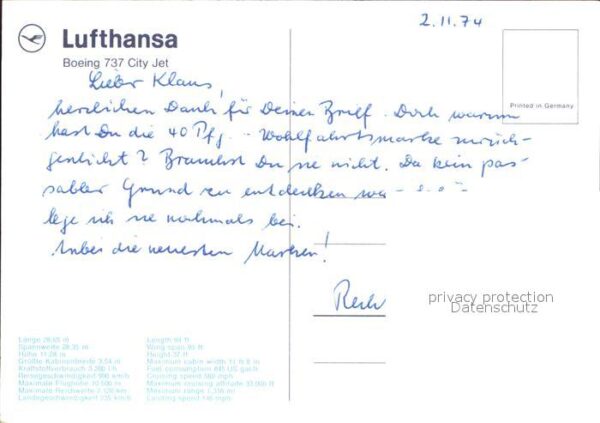 2.11.74
Lufthansa
Boeing 737 City Jet
Printed in Germany
Lieber Klaus,
herzlichen Dank für Deinen Brief. Doch warum
hast Du die 40 Pfg. - Wohlfahrtsmarke zurück-
geschickt? Brauchst Du sie nicht. Da kein pas-
sabler Grund zu entdecken war -
lege ich sie nochmals bei.
Anbei die neuesten Marken!
privacy protection
Datenschutz
Länge 28,65 m
Spannweite 28,35 m
Höhe 11,28 m
Größte Kabinenbreite 3,54 m
Maximale Flughöhe
Maximale Reichweite
Landegeschwindigkeit
Length 94 ft
Wing span 93 ft
Height 37 ft
Maximum cabin width 11 ft
Fuel consumption 845 US gal/h
Cruising speed
Maximum cruising altitude
Maximum range
Landing speed